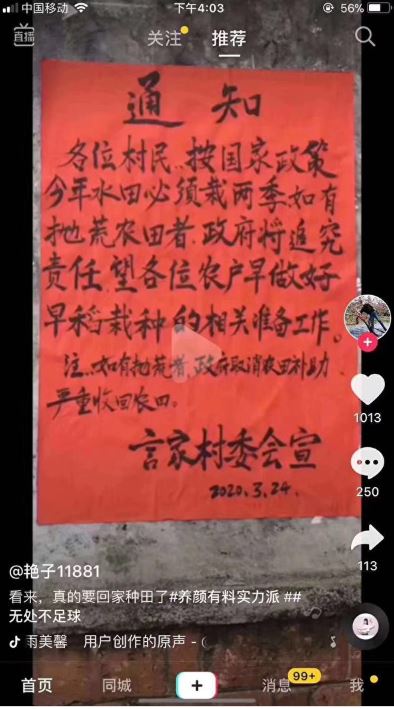 中国移动
下午4:03
56%
直播
关注
推荐
通知
各位村民、按国家政策
今年水田必须栽两季如有
抛荒农田者、政府将追究
责任、望各位农户早做好
早稻栽种的相关准备工作。
注、如有抛荒者、政府取消农田补助
严重收回农田。
言家村委会宣
2020.3.24.
1013
250
113
@艳子11881
看来，真的要回家种田了#养颜有料实力派 ##
无处不足球
雨美馨 用户创作的原声 - (
首页
同城
消息
99+
我